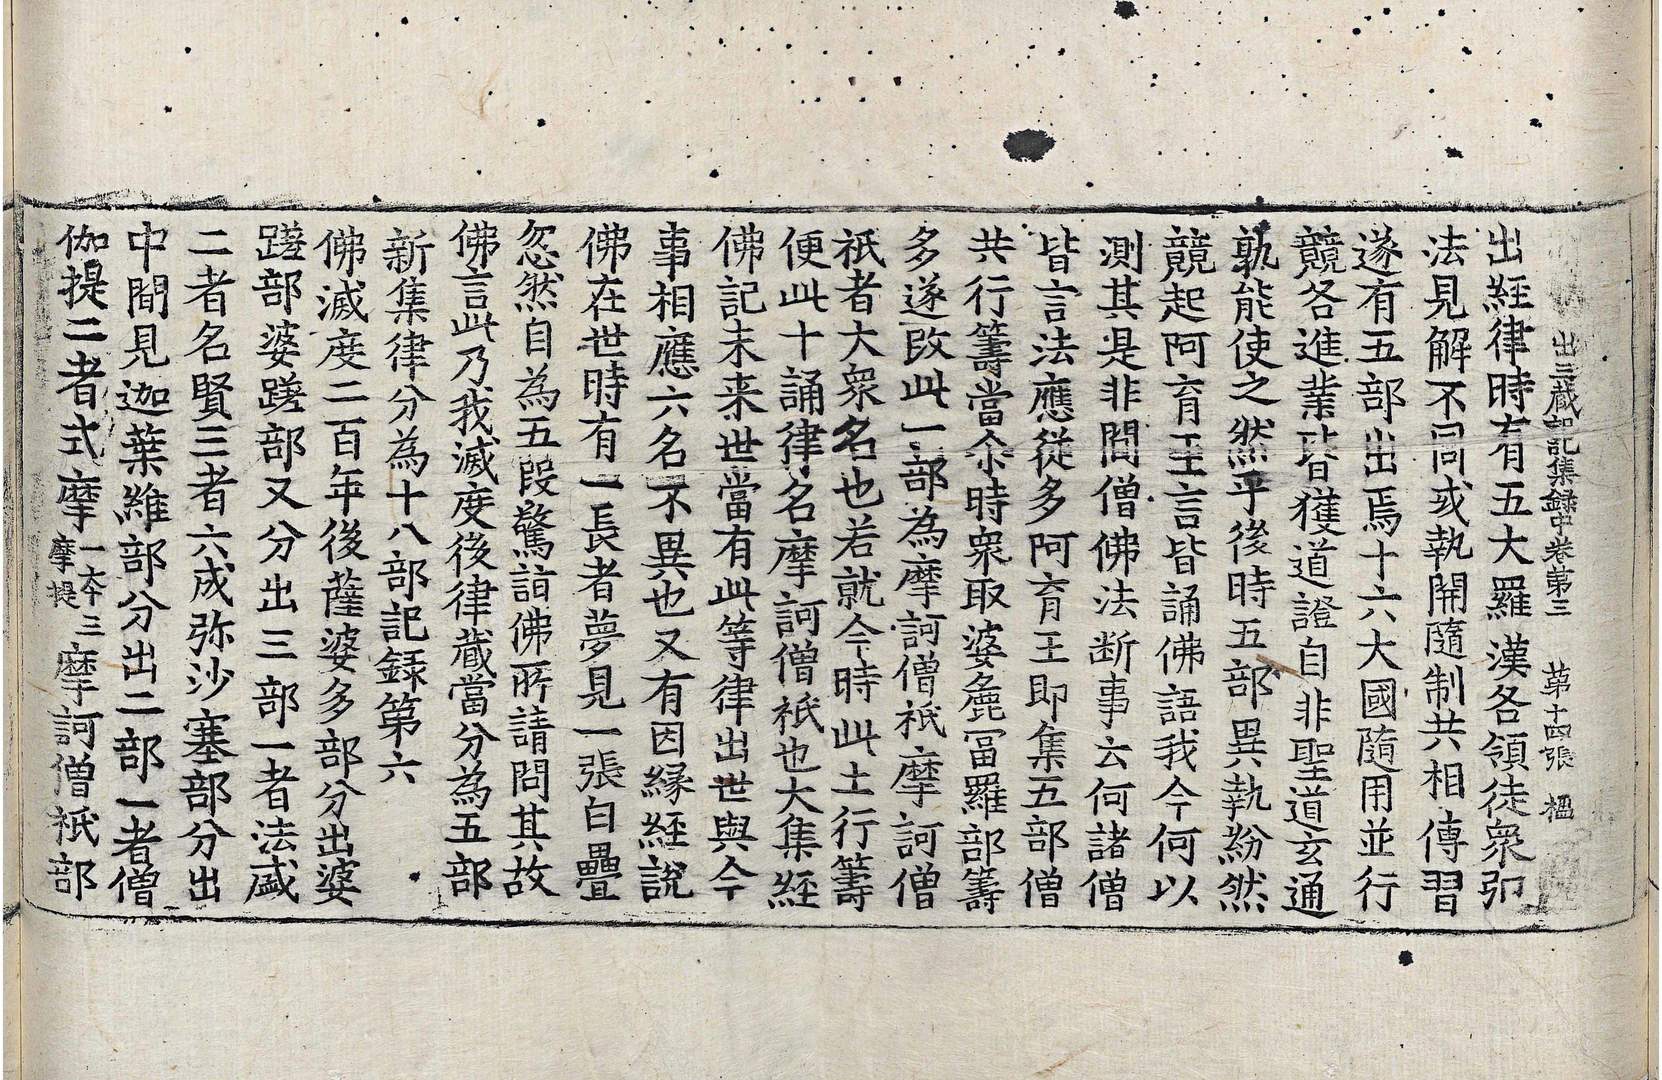 出三藏記集録中卷第三　第十四張　楹
出經律時有五大羅漢各領徒衆弘
法見解不同或執開隨制共相傳習
遂有五部出焉十六大國隨用並行
競各進業皆獲道證自非聖道玄通
孰能使之然乎後時五部異執紛然
競起阿育王言皆誦佛語我今何以
測其是非問僧佛法断事云何諸僧
皆言法應從多阿育王即集五部僧
共行籌當尒時衆取婆麁冨羅部籌
多遂改此一部為摩訶僧祇摩訶僧
祇者大衆名也若就今時此土行籌
便此十誦律名摩訶僧祇也大集經
佛記未来世當有此等律出世與今
事相應六名不異也又有因縁經說
佛在世時有一長者夢見一張白疊
忽然自為五段驚詣佛所請問其故
佛言此乃我滅度後律藏當分為五部
新集律分為十八部記録第六
佛滅度二百年後薩婆多部分出婆
蹉部婆蹉部又分出三部一者法盛
二者名賢三者六成弥沙塞部分出
中間見迦葉維部分出二部一者僧
伽提二者式摩一夲三摩提摩訶僧祇部